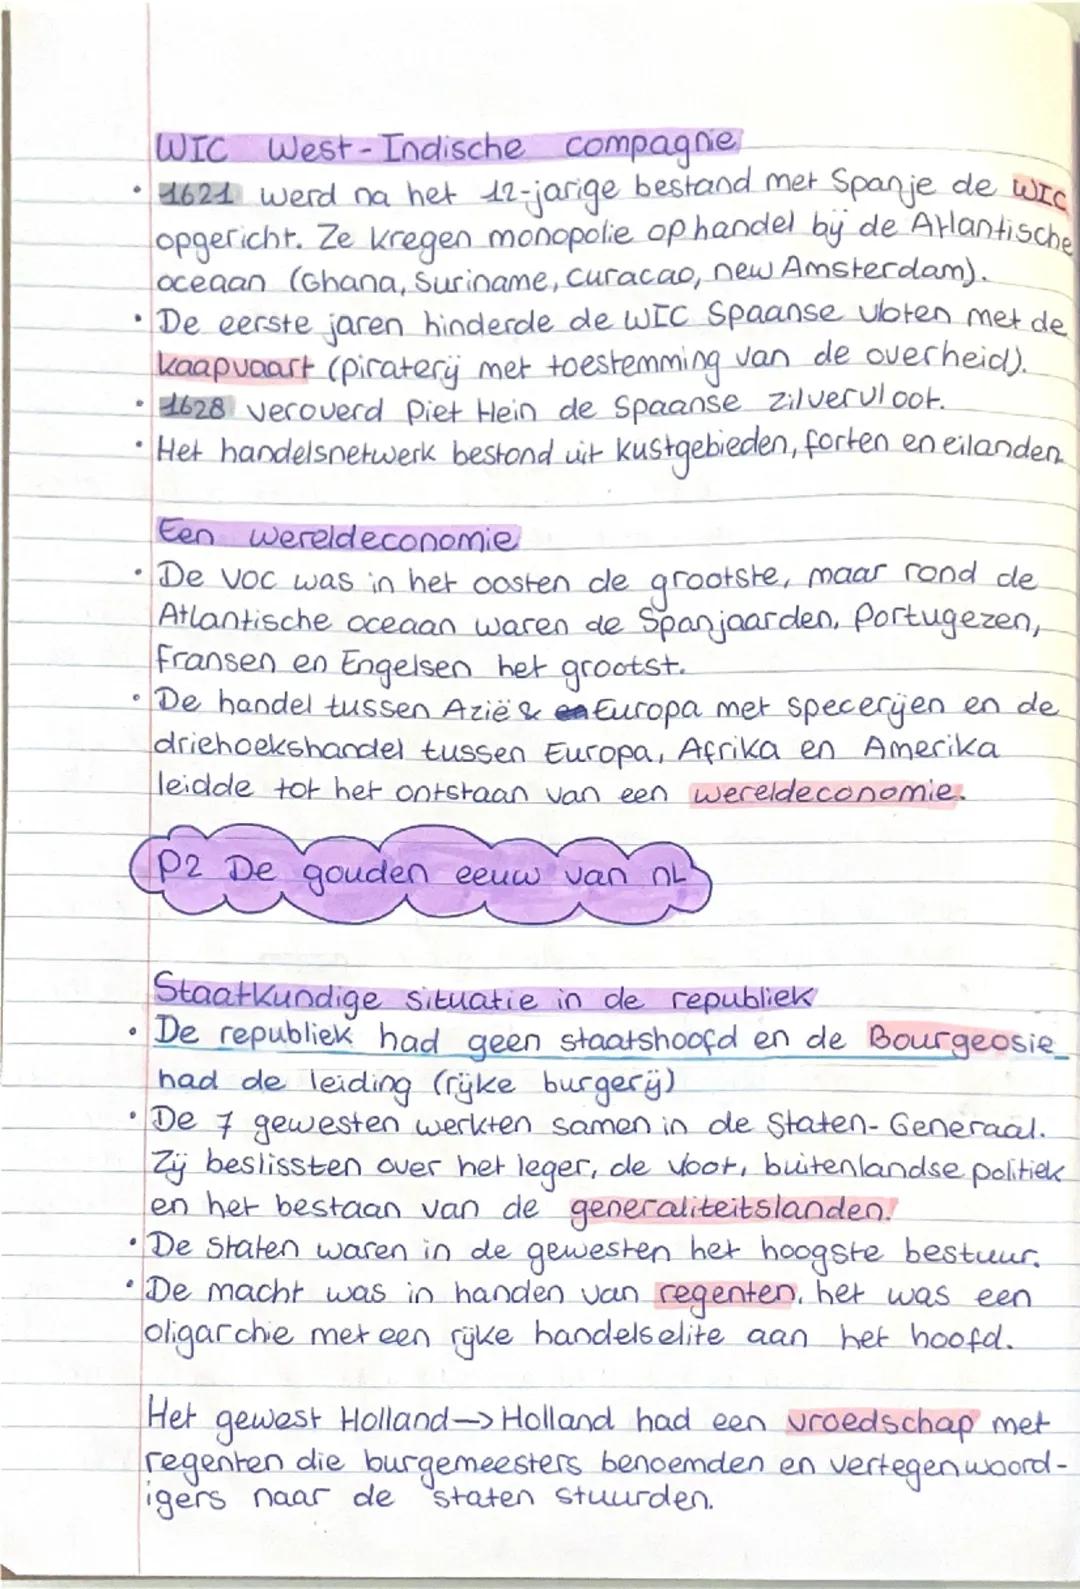 WIC West-Indische compagnie
• 1621 werd na het 12-jarige bestand met Spanje de WIC
opgericht. Ze kregen monopolie op handel bij de Atlantische
oceaan (Ghana, Suriname, Curacao, new Amsterdam).
• De eerste jaren hinderde de WIC Spaanse vloten met de
kaapvaart (piraterij met toestemming van de overheid).
• 1628 veroverd Piet Hein de Spaanse zilvervloot.
• Het handelsnetwerk bestond uit kustgebieden, forten en eilanden
Een wereldeconomie
• De VOC was in het oosten de grootste, maar rond de
Atlantische oceaan waren de Spanjaarden, Portugezen,
Fransen en Engelsen het grootst.
• De handel tussen Azië & Europa met specerijen en de
driehoekshandel tussen Europa, Afrika en Amerika
leidde tot het ontstaan van een wereldeconomie.
P2 De gouden eeuw van NL
Staatkundige situatie in de republiek
• De republiek had geen staatshoofd en de Bourgeosie
had de leiding (rijke burgerij)
• De 7 gewesten werkten samen in de Staten-Generaal.
Zij beslissten over het leger, de vloot, buitenlandse politiek
en het bestaan van de generaliteitslanden.
• De Staten waren in de gewesten het hoogste bestuur.
• De macht was in handen van regenten, het was een
oligarchie met een rijke handelselite aan het hoofd.
Het gewest Holland → Holland had een vroedschap met
regenten die burgemeesters benoemden en vertegenwoord-
igers naar de staten stuurden.